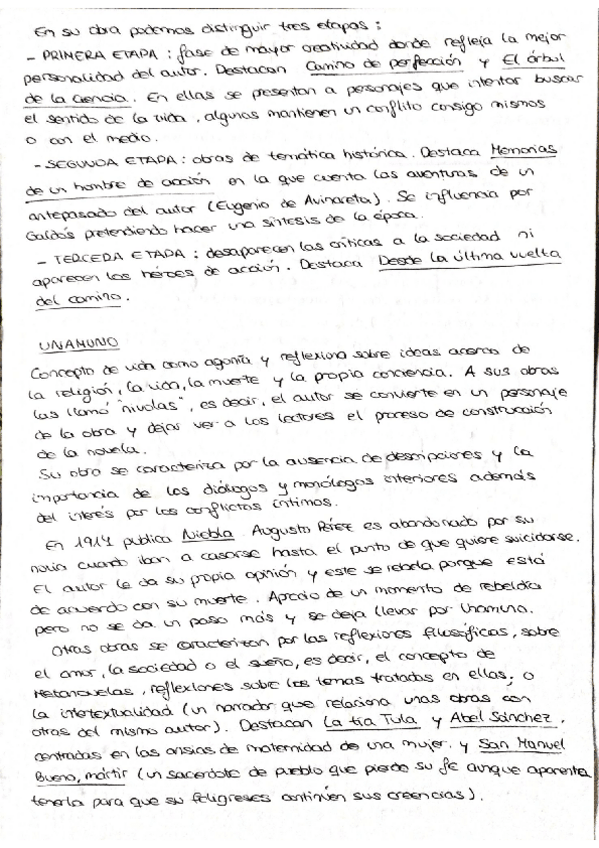 En su obra podemos distinguir tres etapas:
- PRIMERA ETAPA: fase de mayor creatividad donde refleja la mejor
personalidad del autor. Destacan Camino de perfección y El árbol
de la ciencia. En ellas se presentan a personajes que intentan buscar
el sentido de la vida, algunas mantienen un conflito consigo mismos
o con el medio.
- SEGUNDA ETAPA: obras de temática histórica. Destaca Memorias
de un hombre de acción en la que cuenta las aventuras de un
antepasado del autor (Eugenio de Avinareta). Se influencia por
Galdós pretendiendo hacer una síntesis de la época.
- TERCERA ETAPA: desaparecen las críticas a la sociedad ni
aparecen los héroes de acción. Destaca Desde la última vuelta
del camino.
UNAMUNO
Concepto de vida como agonía y reflexiona sobre ideas acerca de
la religión, la vida, la muerte y la propia conciencia. A sus obras
las llamó "nivolas", es decir, el autor se convierte en un personaje
de la obra y dejar ver a los lectores el proceso de construcción
de la novela.
Su obra se caracteriza por la ausencia de descripciones y la
importancia de los diálogos y monólogos interiores además
del interés por los conflictos íntimos.
En 1914 publica Niebla. Augusto Pérez es abandonado por su
novia cuando iban a casarse hasta el punto de que quiere suicidarse.
El autor le da su propia opinión y este se rebela porque está
de acuerdo con su muerte. Aprecio de un momento de rebeldía
pero no se da un paso más y se deja llevar por Unamuno.
Otras obras se caracterizan por las reflexiones filosóficas, sobre
el amor, la sociedad o el sueño, es decir, el concepto de
Metanovelas, reflexiones sobre los temas tratados en ellas; o
la intertextualidad (un narrador que relaciona unas obras con
otras del mismo autor). Destacan La tía Tula y Abel Sánchez,
centradas en las ansias de maternidad de una mujer y San Manuel
Bueno, mártir (un sacerdote de pueblo que pierde su fe aunque aparenta
tenerla para que sus feligreses continúen sus creencias).